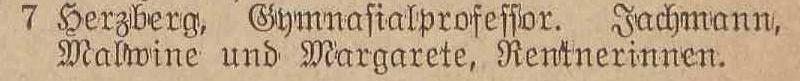 7 Herzberg, Gymnasialprofessor. Jachmann,
Malwine und Margarete, Rentnerinnen.